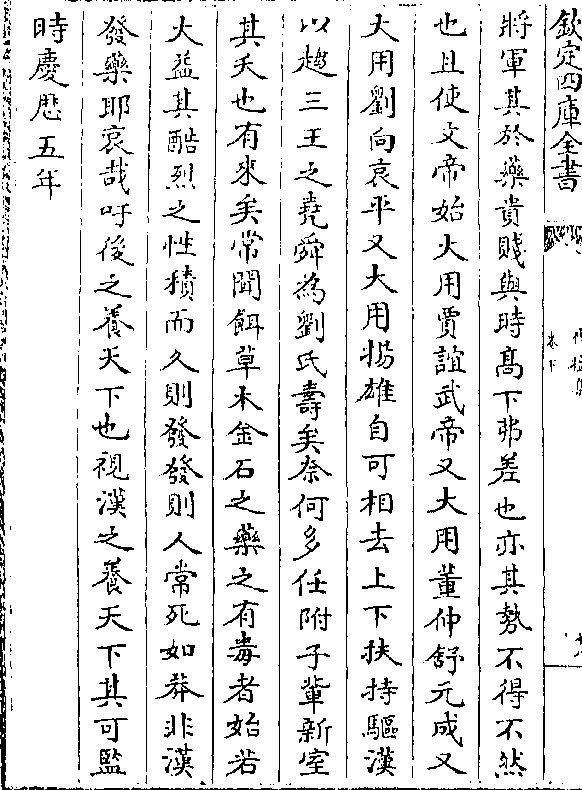 欽定四庫全書
卷下
將軍其於藥貴賤與時高下弗差也亦其勢不得不然
也且使文帝始大用賈誼武帝又大用董仲舒元成又
大用劉向哀平又大用揚雄自可相去上下扶持驅漢
以趨三王之堯舜為劉氏壽矣奈何多任附子輩新室
其夭也有來矣常聞餌草木金石之藥之有毒者始若
大益其酷烈之性積而久則發發則人常死如莽非漢
發藥耶哀哉吁後之養天下也視漢之養天下其可監
時慶厯五年